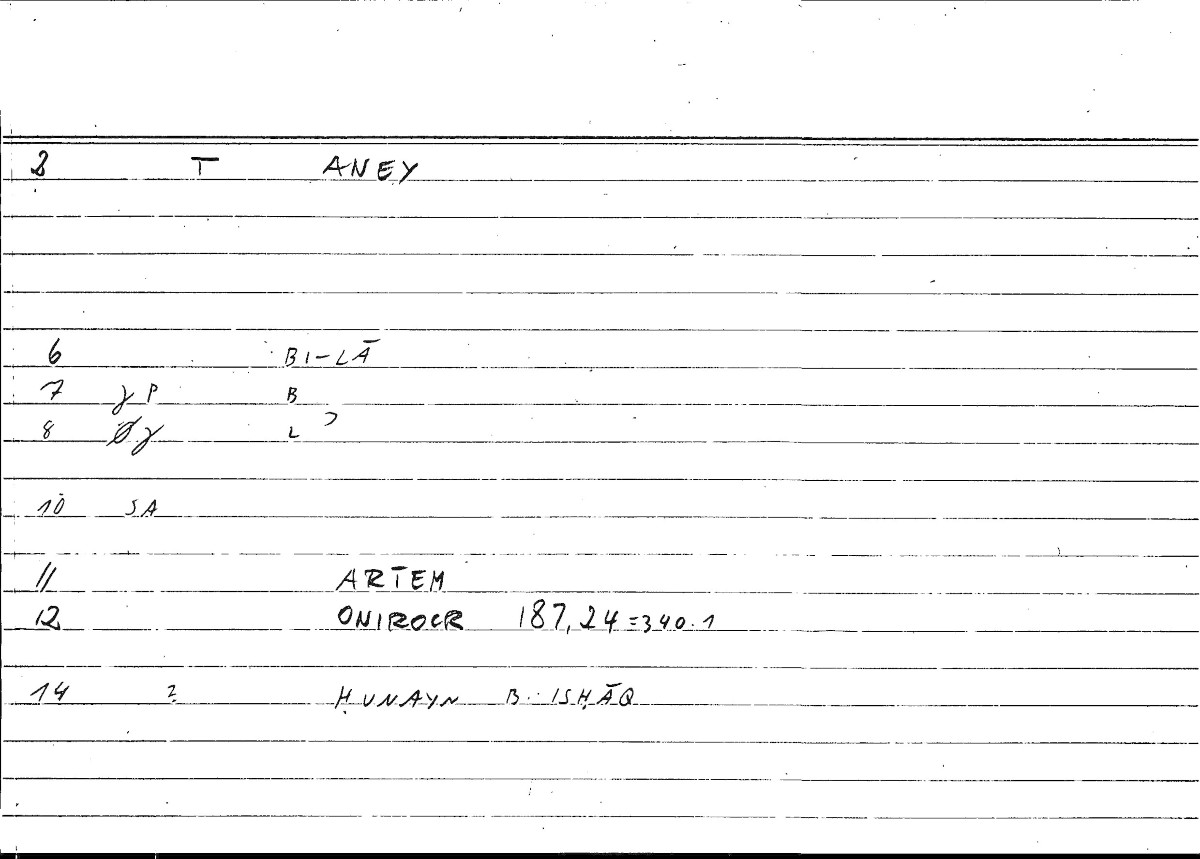 2 T ANEY
6 BI-LĀ
7 γ P B
8 Ø γ L ʾ
10 SA
11 ARTEM
12 ONIROCR 187,24=340.1
14 2 ḤUNAYN B. ISḤĀQ